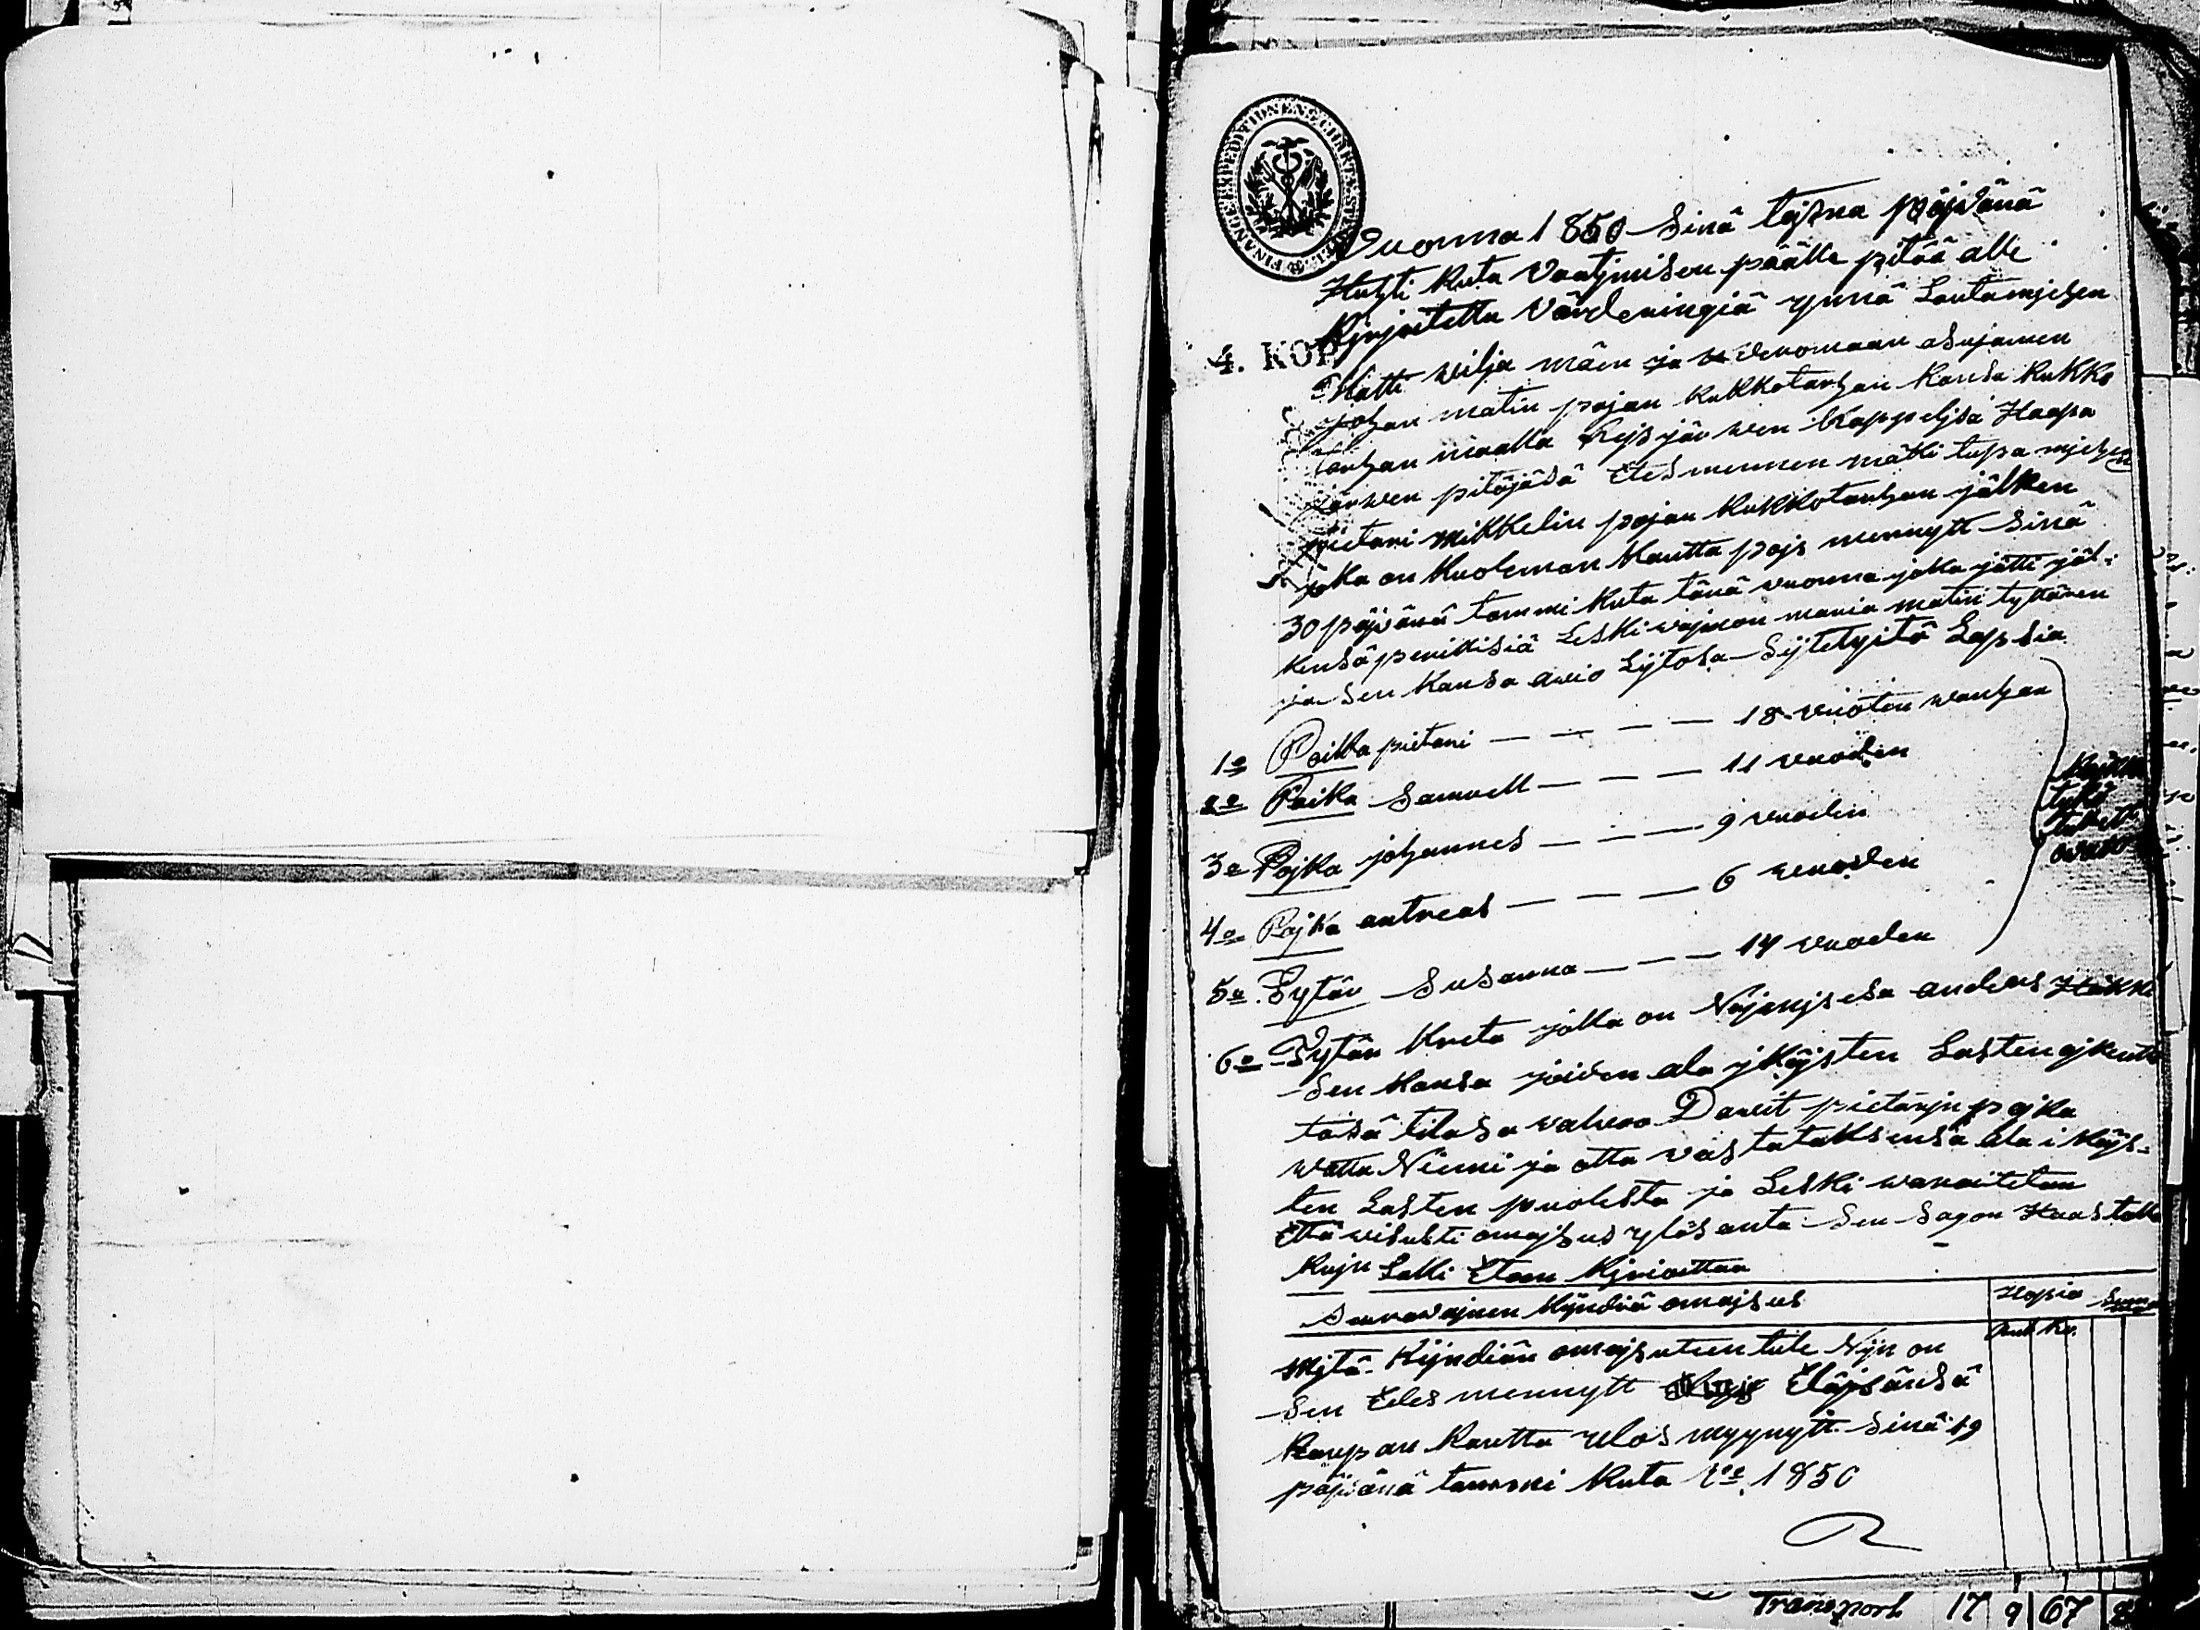 FINANCE EXPEDITIONENS CHARTÆ STEMPEL.
4. KOP
Vuonna 1850 Sinä
Huhti kuta Vaatjmisen päälle pitää alle
Kirjoitettu Värderingiä ynnä Lautamjehen
Matti wilja mäen ja venomaan asujamen
johan matin pojan kukkotarhan kansa kukko
tarhan maalla Reis jär wen kappelisa Haapa
järwen pitäjäsä Etes mennen mätti tupa mjehen
pietari Mikkelin pojan kukkotarhan jälken
joka on kuoleman kautta pojs mennytt Sinä
30 päjvänä tammi kuta tänä vuonna joka jätti jäl-
kensä perillisiä Leski vajmon maria matin tyttären
ja Sen kansa avio Lijtosa Sijtetyitä Lapsia
1o Poika pietari — — — — 18 vuoton wanhan
2o Poika Samuell — — — 11 vuoden
3o Pojka johannes — — — 9 vuoden
4o Pojka antreas — — — 6 vuoden
5o Tytär Susanna — — — 14 vuoden
6o Tytär kreta jolka on Najmijsesa anders
Sen kansa joiden ala jkäjsten Lasten
täsä tilasa valvoo Davit pietarjn pojka
Niemi ja otta vastataksensa ala i käjs-
ten Lasten puolesta ja Leski waroitetan
Että visusti omajsus ylös anta Sen
kujn Laki Etoen kirioittaa
Seuravajnen kijndiä omajsus
Hopia Summa
Rub Ko.
Mjtä kijndiän omajsuteen tule Nijn on
Sen Edes mennytt Eläjsänsä
kaupan kautta ulos myynytt Sinä 19
päjvänä tammi kuta 1850
Transport 17 9 67